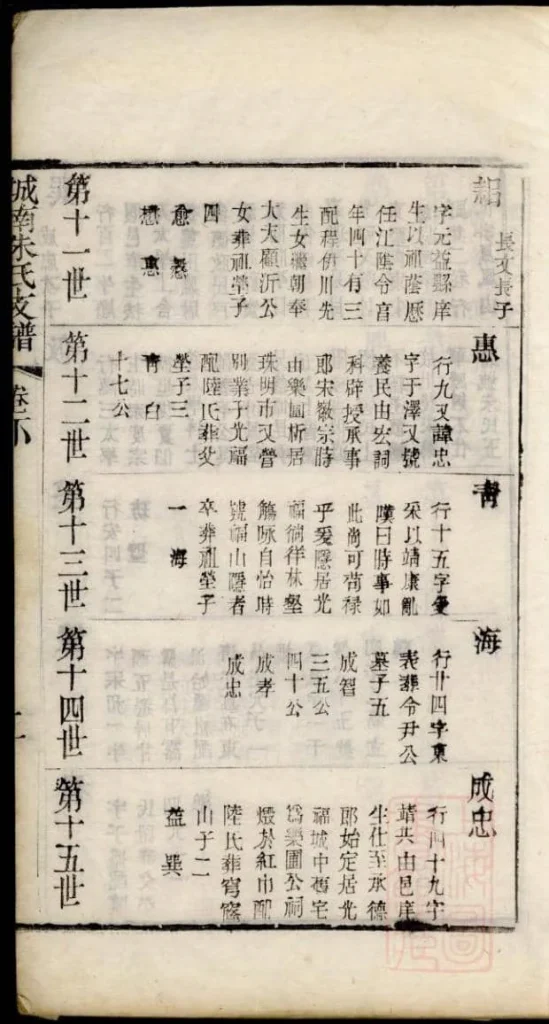 紹 長文長子
字元益縣庠
生以祖蔭歷
任江陰令官
年四十有三
配程伊川先
生女繼朝奉
大夫顧沂公
女葬祖塋子
四
愈 愨
懋 惠
第十一世
惠
行九又諱忠
字于澤又號
養民由宏詞
科辟授承事
郎宋徽宗時
由樂圃析居
珠明市又營
別業于光福
配陸氏葬父
塋子三
青 白
十七公
第十二世
青
行十五字愛
采以靖康亂
嘆曰時事如
此尚可苟祿
乎爰隱居光
福徜徉林壑
觴咏自怡時
號福山隱者
卒葬祖塋子
一 海
第十三世
海
行廿四字東
表葬令尹公
墓子五
成智
三五公
四十公
成孝
成忠
第十四世
成忠
行四十九字
靖共由邑庠
生仕至承德
郎始定居光
福城中舊宅
爲樂圃公祠
燬於紅巾配
陸氏葬穹窿
山子二
益 巽
第十五世
城南朱氏支譜 卷下